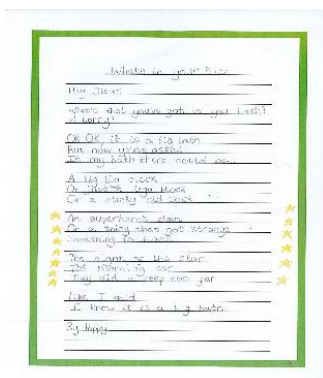 What's in your Bath
Hey Jesus!
what's that you've got in you bath?
A lorry?
OK OK, it is a big bath
But now you've asked
In my bath there could be..
A big big clock
Or just a lego block
Or a stinky old sock
An superhero's
Or a thing that got strange
The night so the star
The morning
They did a step too far
Like I said
I know it is a big bath
By Poppy